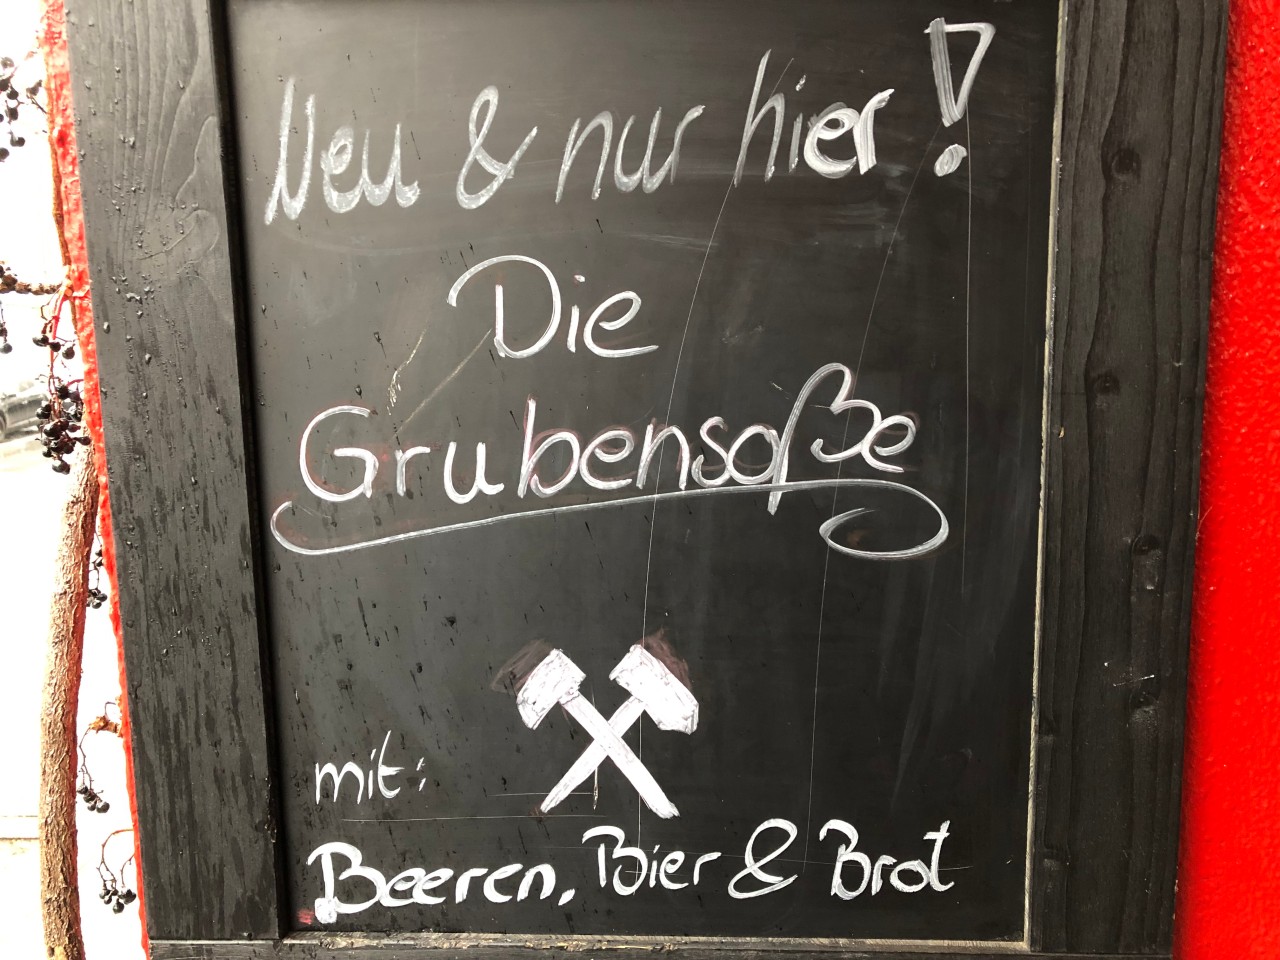 Neu & nur hier!
Die
Grubensoße
mit:
Beeren, Bier & Brot